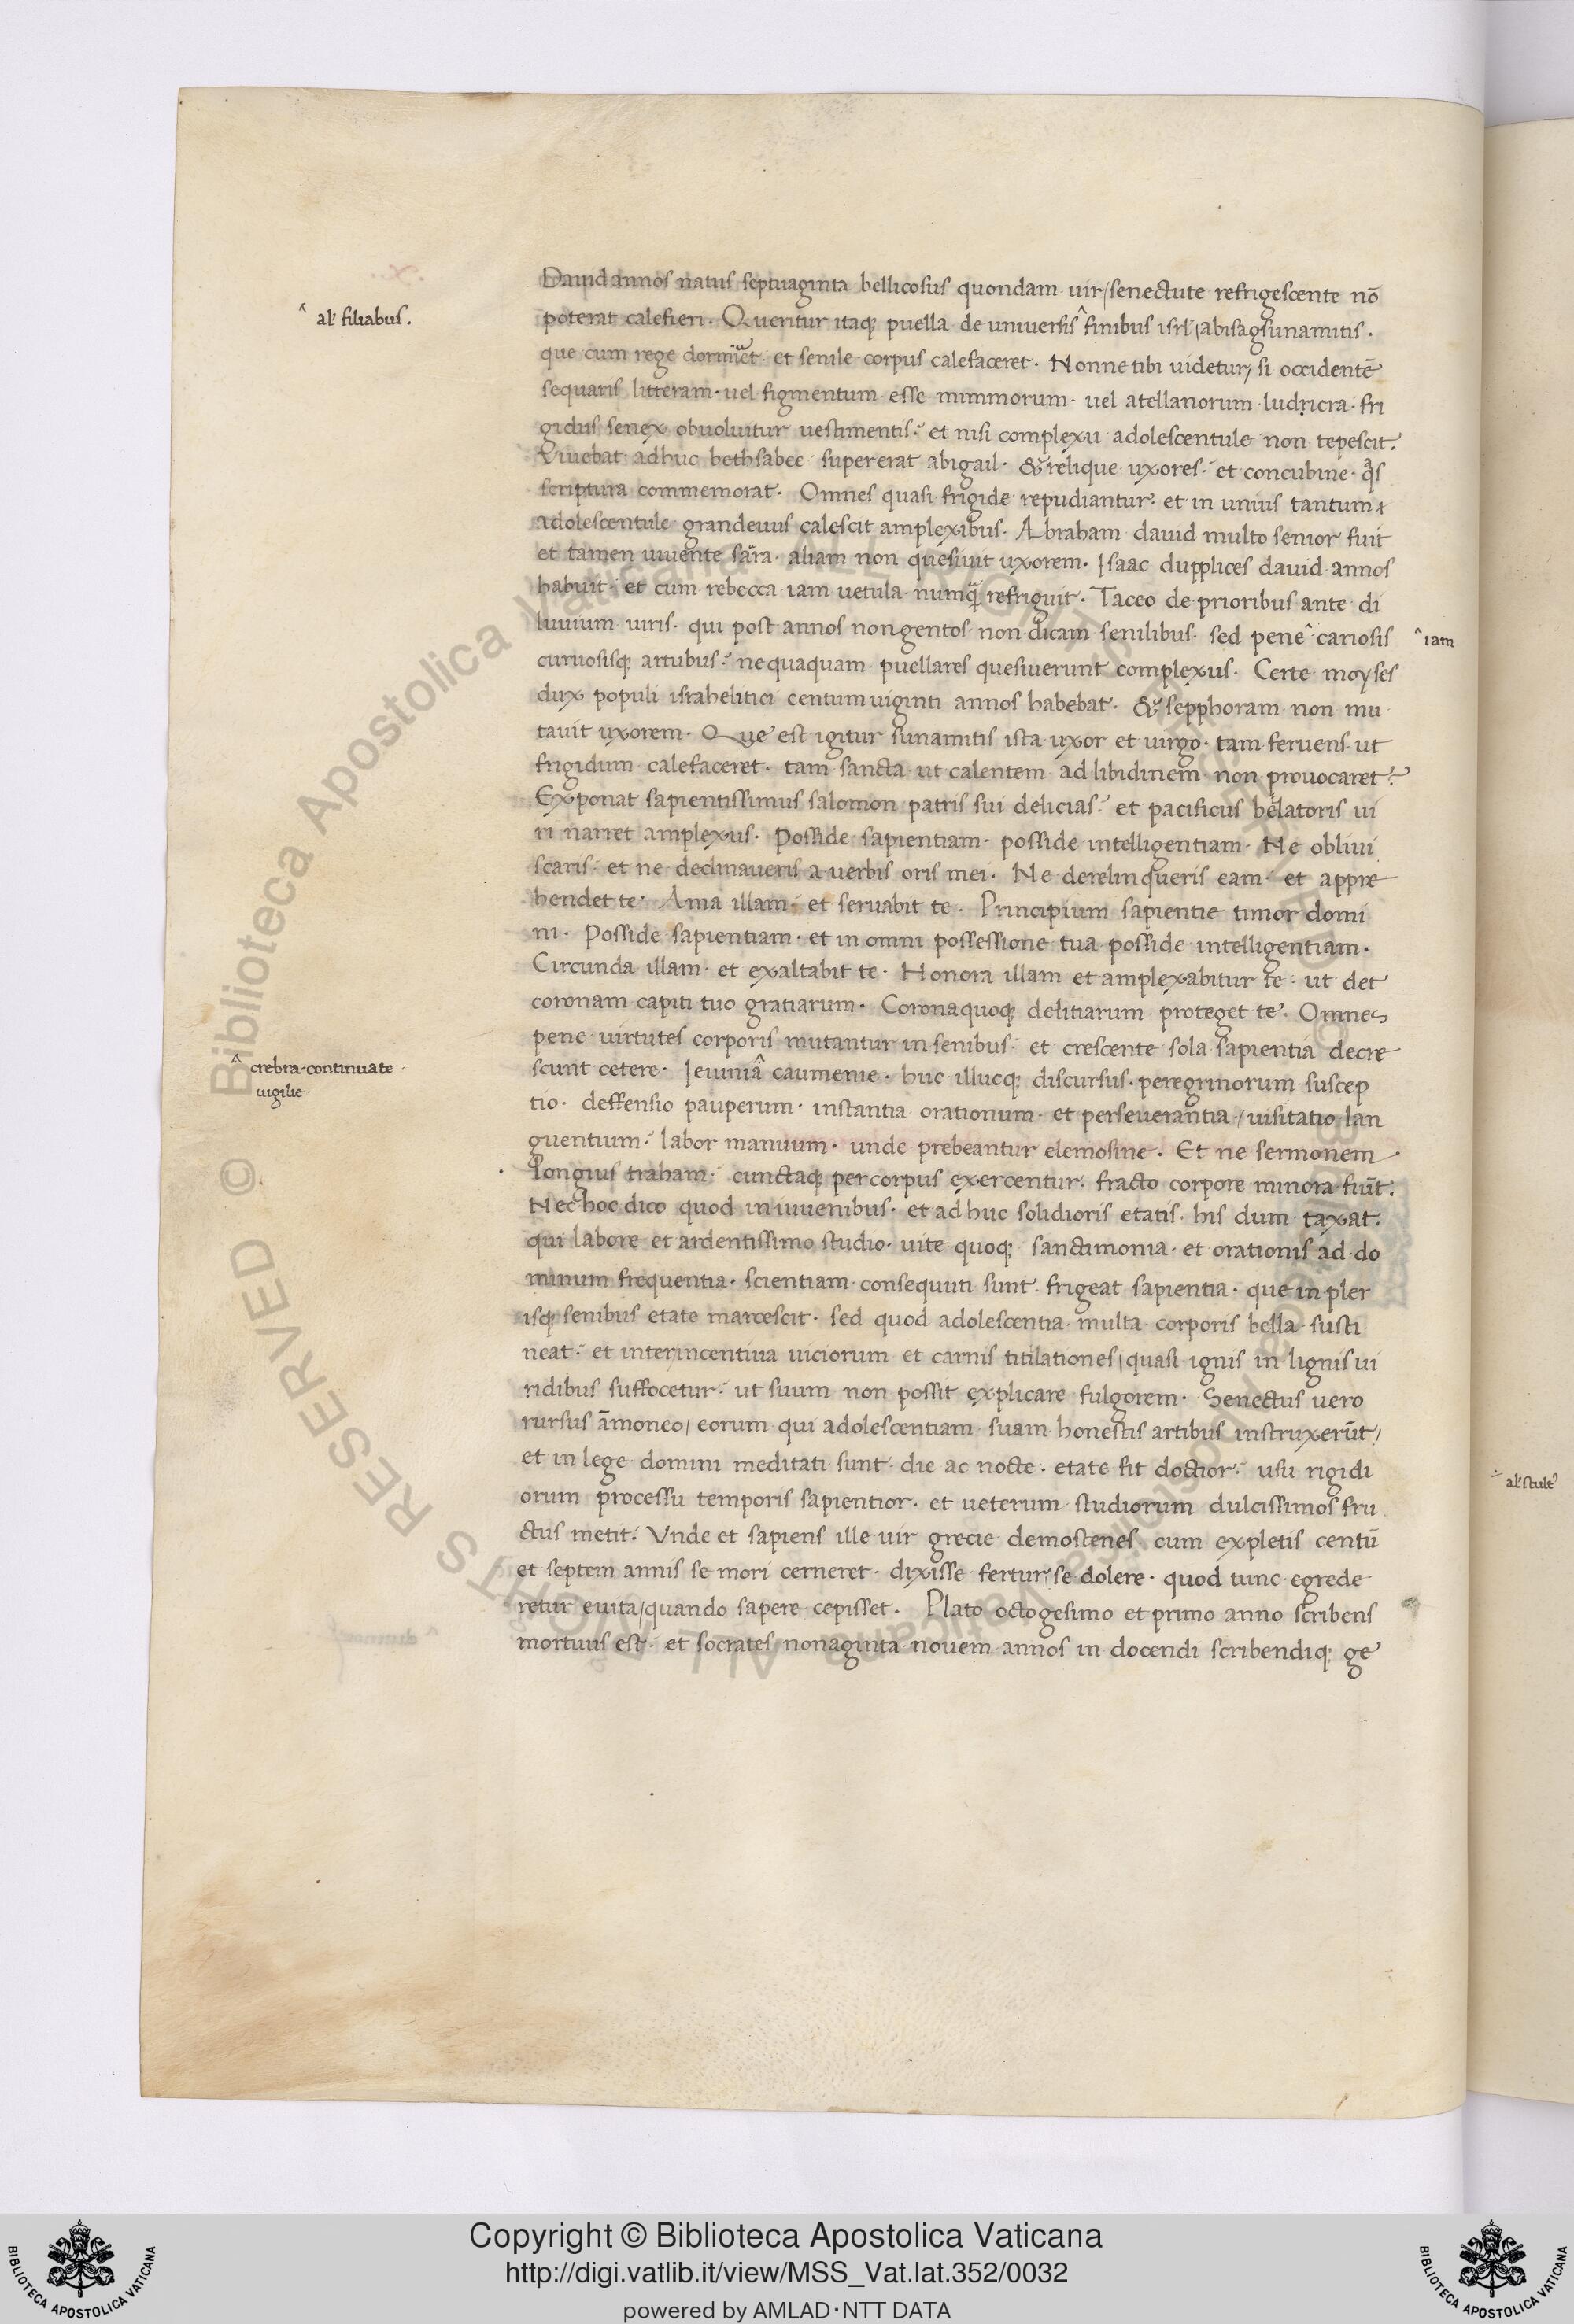 Dauid annos natus septuaginta bellicosus quondam uir/senectute refrigescente nō
^ al' filiabus.
poterat calefieri. Queritur itaq; puella de uniuersis^ finibus isrl'/abisagsunamitis.
que cum rege dormiret. et senile corpus calefaceret. Nonne tibi uidetur, si occidentē
sequaris litteram. uel figmentum esse mimmorum. uel atellanorum ludricra. fri
gidus senex obuoluitur uestimentis. et nisi complexu adolescentule non tepescit.
Viuebat adhuc bethsabee supererat abigail. & relique uxores. et concubine. q̄s
scriptura commemorat. Omnes quasi frigide repudiantur. et in unius tantum
adolescentule grandeuus calescit amplexibus. Abraham dauid multo senior fuit
et tamen uiuente sara. aliam non quesiuit uxorem. Isaac dupplices dauid annos
habuit. et cum rebecca iam uetula numq̄ refriguit. Taceo de prioribus ante di
luuium uiris. qui post annos nongentos non dicam senilibus. sed pene^ cariosis
^ iam
curuosisq; artubus. nequaquam puellares quesiuerunt complexus. Certe moyses
dux populi israhelitici centum uiginti annos habebat. & sepphoram non mu
tauit uxorem. Que est igitur sunamitis ista uxor et uirgo. tam feruens ut
frigidum calefaceret. tam sancta ut calentem ad libidinem non prouocaret?
Exponat sapientissimus salomon patris sui delicias. et pacificus belatoris ui
ri narret amplexus. Posside sapientiam. posside intelligentiam. Ne obliui
scaris. et ne declinaueris a uerbis oris mei. Ne derelinqueris eam. et appre
hendet te. Ama illam. et seruabit te. Principium sapientie timor domi
ni. Posside sapientiam. et in omni possessione tua posside intelligentiam.
Circunda illam. et exaltabit te. Honora illam et amplexabitur te. ut det
coronam capiti tuo gratiarum. Corona quoq; delitiarum proteget te. Omnes
pene uirtutes corporis mutantur in senibus. et crescente sola sapientia decre
^ crebra continuate
uigilie
scunt cetere. Ieiunia^ caumenie. huc illucq; discursus. peregrinorum suscep
tio. deffensio pauperum. instantia orationum. et perseuerantia/uisitatio lan
guentium. labor manuum. unde prebeantur elemosine. Et ne sermonem
longius traham. cunctaq; per corpus exercentur. fracto corpore minora fiūt.
Nec hoc dico quod in iuuenibus. et ad huc solidioris etatis. his dum taxat.
qui labore et ardentissimo studio. uite quoq; sanctimonia. et orationis ad do
minum frequentia. scientiam consequuti sunt. frigeat sapientia. que in pler
isq; senibus etate marcescit. sed quod adolescentia multa corporis bella susti
neat. et inter incentiua uiciorum et carnis titilationes/quasi ignis in lignis ui
ridibus suffocetur. ut suum non possit explicare fulgorem. Senectus uero
rursus āmoneo/eorum qui adolescentiam suam honestis artibus instruxerūt/
et in lege domini meditati sunt die ac nocte. etate fit doctior. usu rigidi
al' stult'
orum processu temporis sapientior. et ueterum studiorum dulcissimos fru
ctus metit. Vnde et sapiens ille uir grecie demostenes. cum expletis centū
et septem annis se mori cerneret. dixisse fertur/se dolere. quod tunc egrede
retur euita/quando sapere cepisset. Plato octogesimo et primo anno scribens
mortuus est. et socrates nonaginta nouem annos in docendi scribendiq; ge
© Biblioteca Apostolica Vaticana ALL RIGHTS RESERVED
© Biblioteca Apostolica Vaticana ALL RIGHTS RESERVED
Copyright © Biblioteca Apostolica Vaticana
http://digi.vatlib.it/view/MSS_Vat.lat.352/0032
powered by AMLAD·NTT DATA
BIBLIOTECA APOSTOLICA VATICANA
BIBLIOTECA APOSTOLICA VATICANA